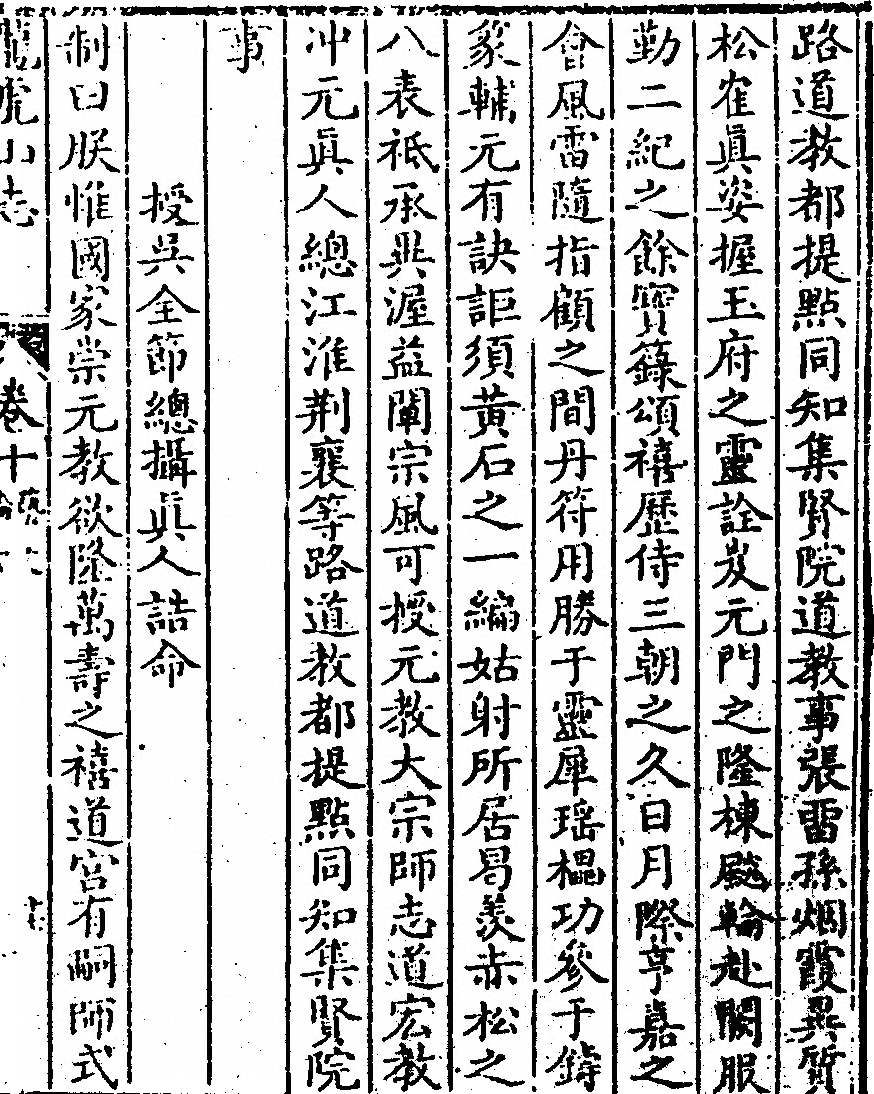 路道教都提點同知集賢院道教事張畱孫烟霞異質
松雀眞姿握玉府之靈詮岌元門之隆棟飈輪赴闕服
勤二紀之餘寶籙頌禧歷侍三朝之久日月際亨嘉之
會風雷隨指顧之間丹符用勝于靈犀瑶櫑功參于鑄
象輔元有訣詎須黃石之一編姑射所居曷羨赤松之
八表祇承異渥益闡宗風可授元教大宗師志道宏教
冲元眞人總江淮荆襄等路道教都提點同知集賢院
事
授吳全節總攝眞人誥命
制曰朕惟國家崇元教欲隆萬壽之禧道宫有嗣師式
龍虎山志
卷十